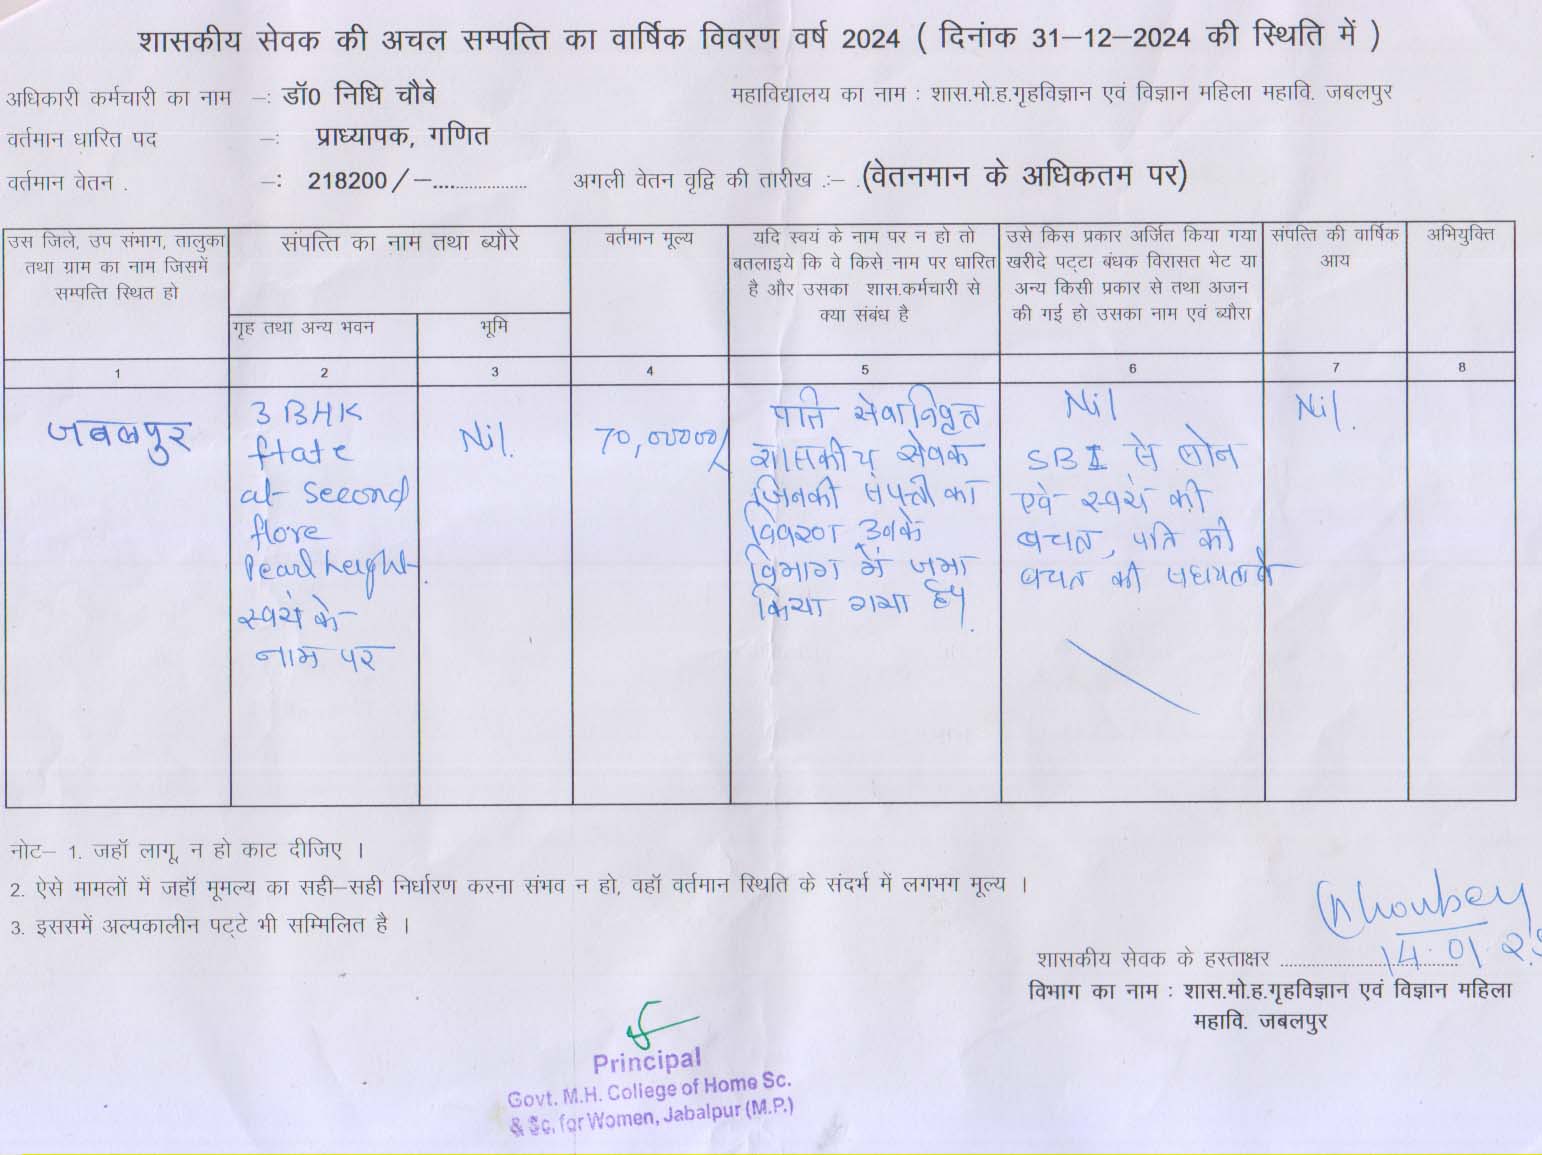 शासकीय सेवक की अचल सम्पत्ति का वार्षिक विवरण वर्ष 2024 ( दिनांक 31–12–2024 की स्थिति में )
अधिकारी कर्मचारी का नाम –: डॉ0 निधि चौबे
महाविद्यालय का नाम : शास.मो.ह.गृहविज्ञान एवं विज्ञान महिला महावि. जबलपुर
वर्तमान धारित पद –: प्राध्यापक, गणित
वर्तमान वेतन . –: 218200/–...................
अगली वेतन वृद्वि की तारीख .:– .(वेतनमान के अधिकतम पर)
उस जिले, उप संभाग, तालुका
तथा ग्राम का नाम जिसमें
सम्पत्ति स्थित हो
संपत्ति का नाम तथा ब्यौरे
गृह तथा अन्य भवन
भूमि
वर्तमान मूल्य
यदि स्वयं के नाम पर न हो तो
बतलाइये कि वे किसे नाम पर धारित
है और उसका शास.कर्मचारी से
क्या संबंध है
उसे किस प्रकार अर्जित किया गया
खरीदे पट्टा बंधक विरासत भेट या
अन्य किसी प्रकार से तथा अजन
की गई हो उसका नाम एवं ब्यौरा
संपत्ति की वार्षिक
आय
अभियुक्ति
1 2 3 4 5 6 7 8
जबलपुर
3 BHK
flate
at second
flore
Pearl height.
स्वयं के
नाम पर
Nil.
70,00000/
पति सेवानिवृत्त
शासकीय सेवक
जिनकी संपत्ती का
विवरण उनके
विभाग में जमा
किया गया है।
Nil
SBI से लोन
एवं स्वयं की
बचत, पति की
बचत की सहायता से
Nil.
नोट– 1. जहॉ लागू न हो काट दीजिए ।
2. ऐसे मामलों में जहॉ मूमल्य का सही–सही निर्धारण करना संभव न हो, वहॉ वर्तमान स्थिति के संदर्भ में लगभग मूल्य ।
3. इससमें अल्पकालीन पट्टे भी सम्मिलित है ।
Nhoubey
शासकीय सेवक के हस्ताक्षर ................................ 14.01.25
विभाग का नाम : शास.मो.ह.गृहविज्ञान एवं विज्ञान महिला
महावि. जबलपुर
Principal
Govt. M.H. College of Home Sc.
& Sc. for Women, Jabalpur (M.P.)